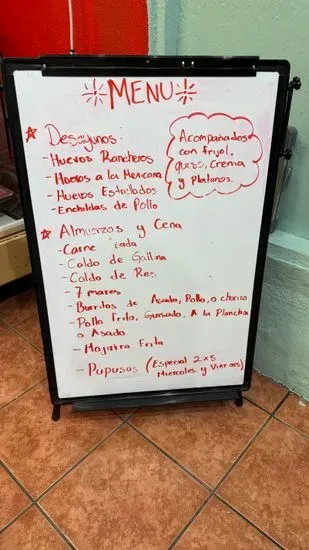 MENU
Desayunos:
- Huevos Rancheros
- Huevos a la Mexicana
- Huevos Estrellados
- Enchildas de Pollo
Acompañados
con frijol,
queso, Crema
y Platanos.
Almuerzos y Cena
- Carne ada
- Caldo de Gallina
- Caldo de Res
- 7 mares
- Burritos de Asada, Pollo, o chorizo
- Pollo Frito, Guisado, A la Plancha
o Asado
- Mojarra Frita
- Pupusas (Especial 2x5
Miercoles y Viernes)